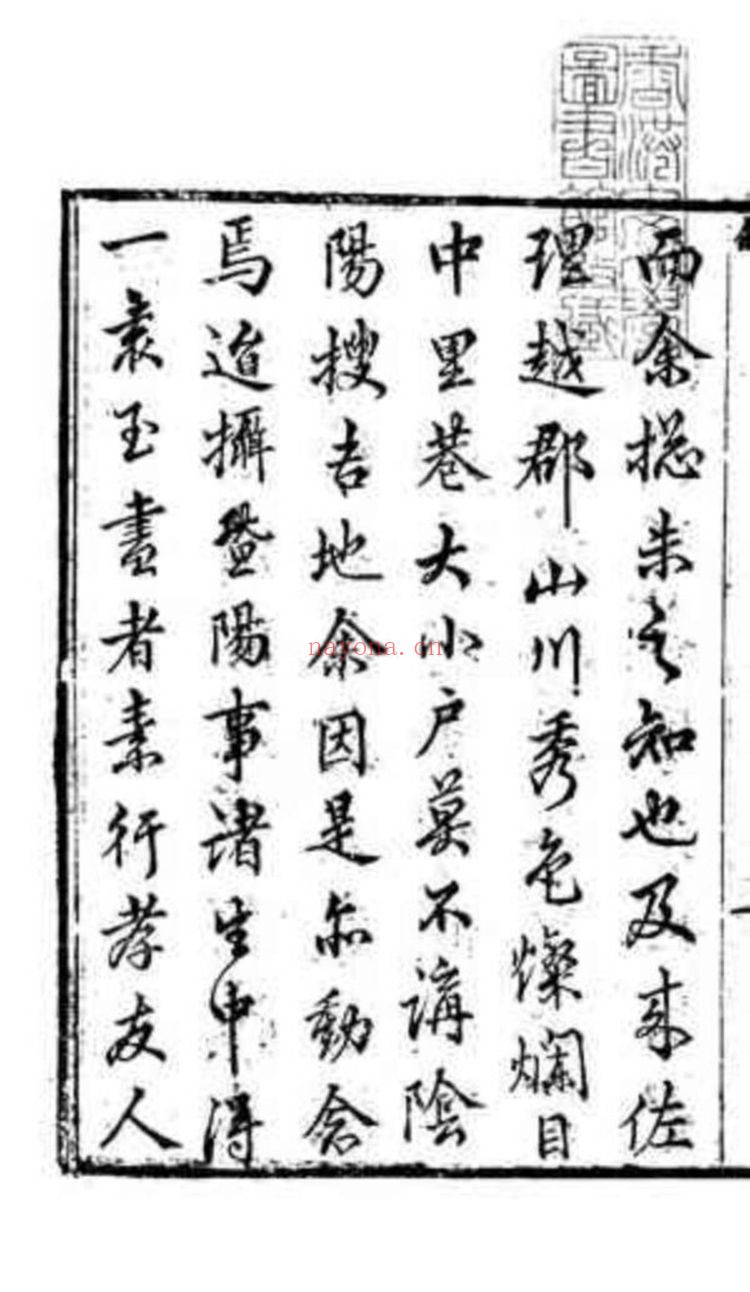 而余捴未之知也及来佐
理越郡山川秀色燦爛目
中里巷大小户莫不講陰
陽搜吉地余因是亦動念
焉迨攝暨陽事諸生中得
一袁玉書者素行孝友人
香港大學
圖書館藏
nayona.cn